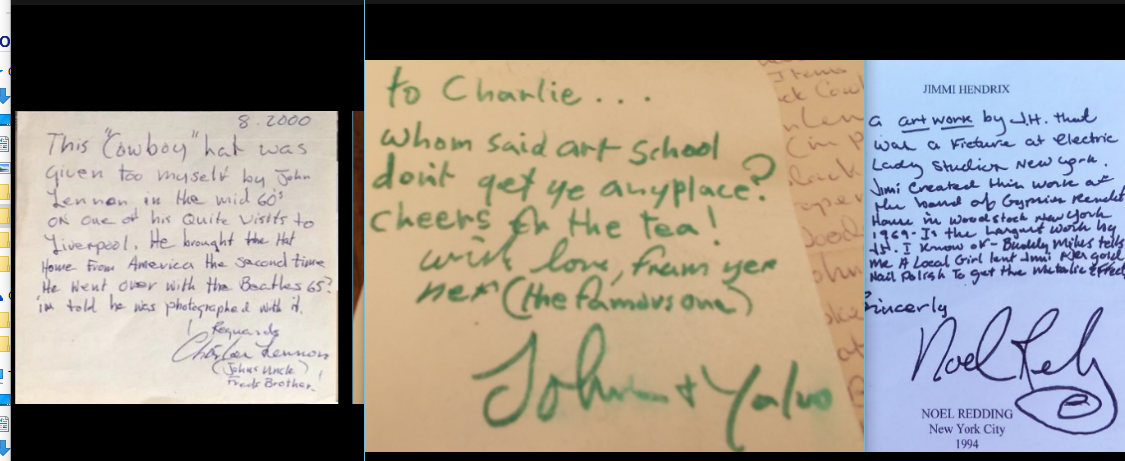 8.2000
This "Cowboy" hat was
given too myself by John
Lennon in the mid 60's
on one of his Quite Visits to
Liverpool. He brought the Hat
Home From America the second time
He went over with the Beatles 65?
im told he was photographed with it.
Reguards
Charles Lennon
(Johns Uncle)
Freds Brother!
to Charlie...
whom said art school
don't get ye anyplace?
cheers fh the tea!
with love, from yer
nex (the famous one)
John + Yoko
Items
JIMMI HENDRIX
a art work by J.H. that
was a Fixture at Electric
Lady Studios New York.
Jimi Created this work at
the band of Gypsies Rented
House in Woodstock New York
1969 - Is the Largest work by
J.H. I Know of - Buddy Miles tells
me A Local Girl lent Jimi Her gold
Nail Polish To get the Metalic Effect
Sincerly
Noel Redding
NOEL REDDING
New York City
1994